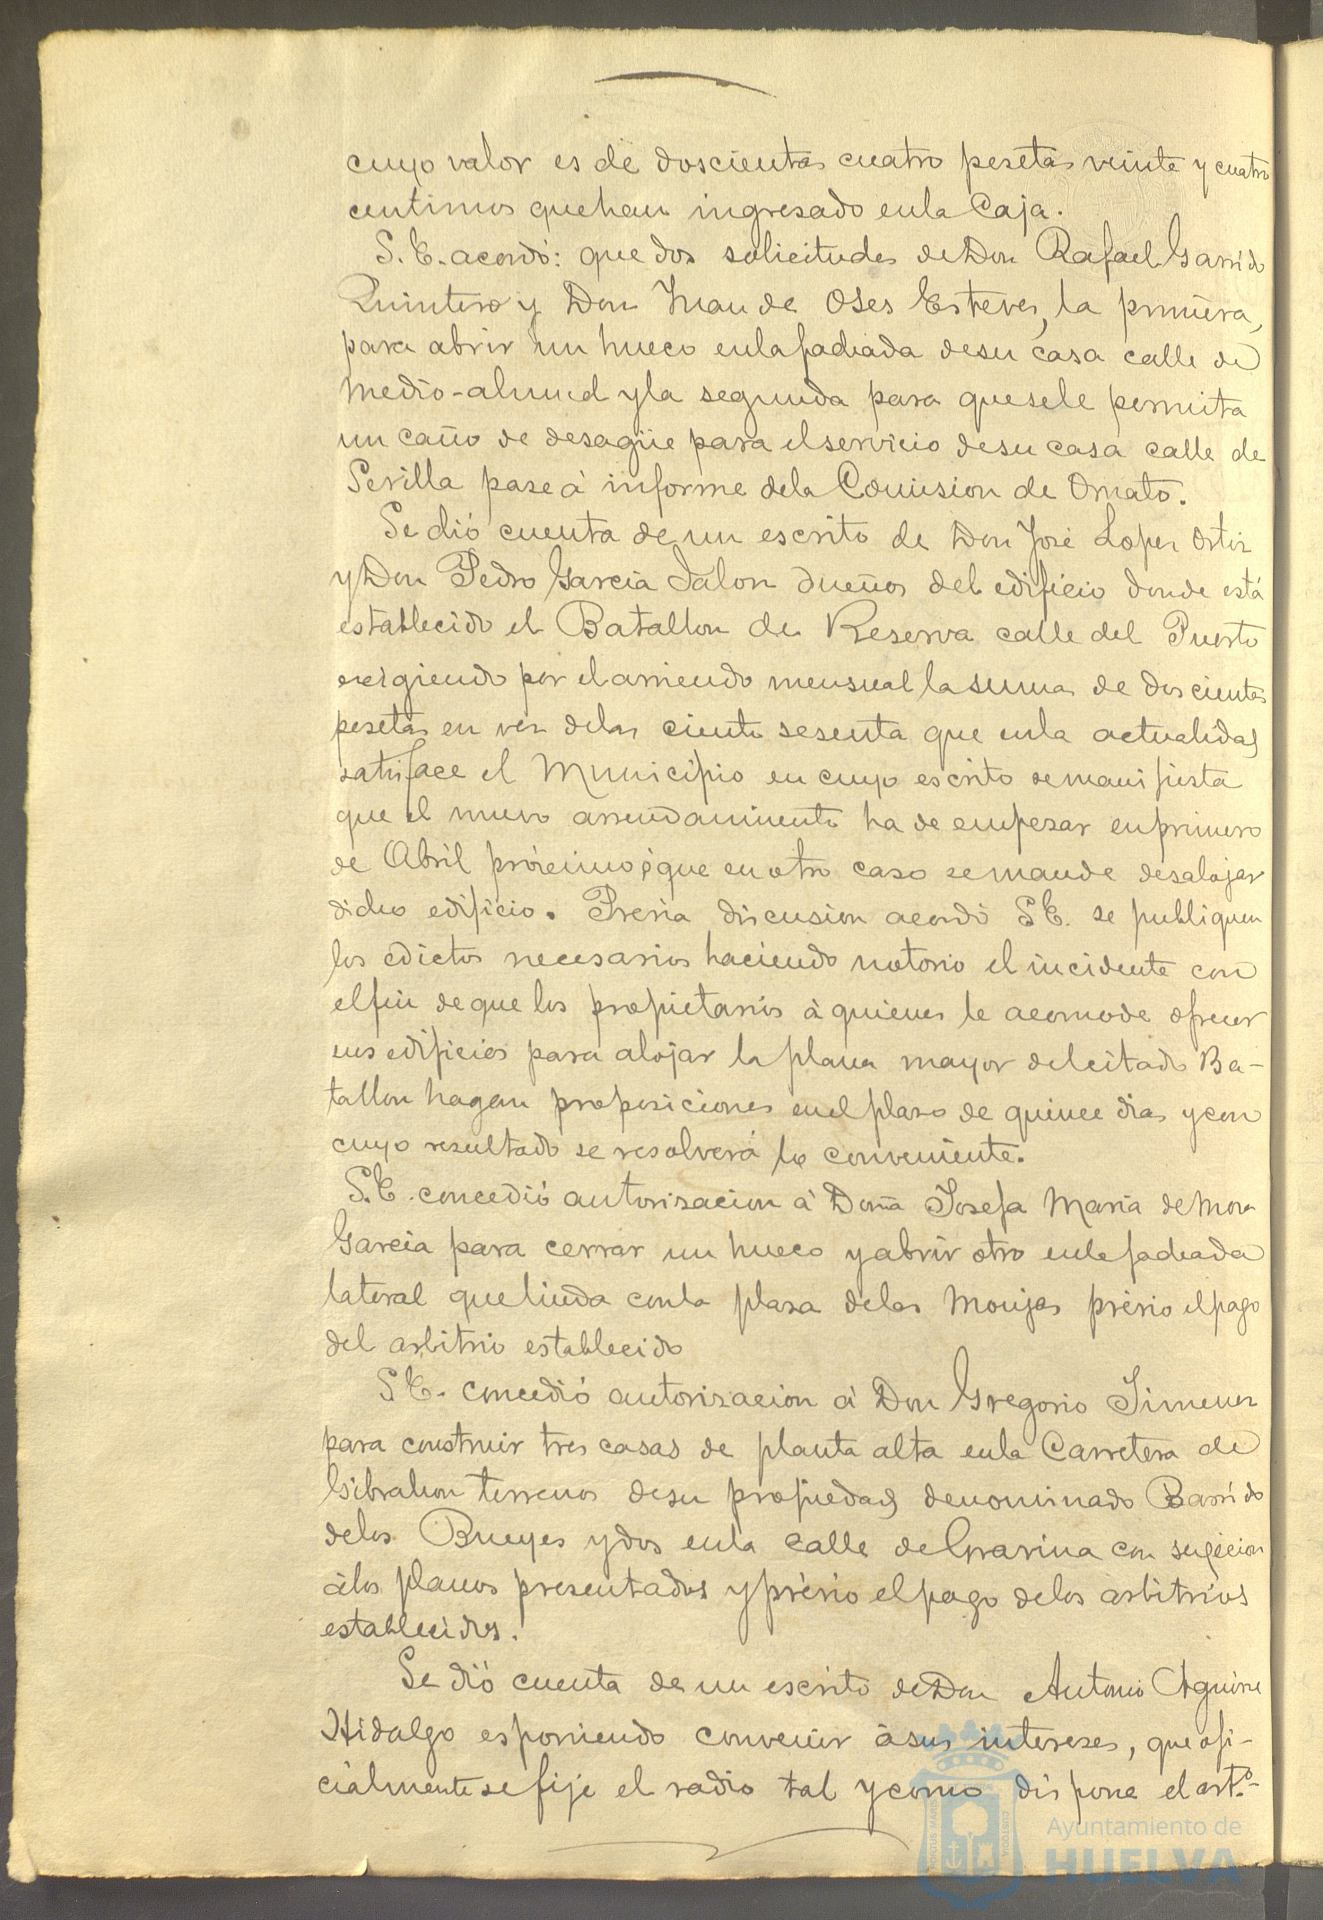 cuyo valor es de doscientas cuatro pesetas veinte y cuatro
centimos que han ingresado en la Caja.
S. E. acordó: que dos solicitudes de Don Rafael Garrido
Quintero y Don Juan de Oses Esteves, la primera,
para abrir un hueco en la fachada de su casa calle de
Medio-almud y la segunda para que se le permita
un caño de desagüe para el servicio de su casa calle de
Sevilla pase á informe de la Comision de Ornato.
Se dió cuenta de un escrito de Don José Lopez Ortiz
y Don Pedro Garcia Jalon dueños del edificio donde está
establecido el Batallon de Reserva calle del Puerto
exigiendo por el arriendo mensual la suma de doscientas
pesetas en vez de las ciento sesenta que en la actualidad
satisface el Municipio en cuyo escrito se manifiesta
que el nuevo arrendamiento ha de empezar en primero
de Abril próximo ó que en otro caso se mande desalojar
dicho edificio. Previa discusion acordó S. E. se publiquen
los edictos necesarios haciendo notorio el incidente con
el fin de que los propietarios á quienes le acomode ofrecer
sus edificios para alojar la plana mayor del citado Ba-
tallon hagan proposiciones en el plazo de quince dias y con
cuyo resultado se resolverá lo conveniente.
S. E. concedió autorizacion á Doña Josefa Maria de Mora
Garcia para cerrar un hueco y abrir otro en la fachada
lateral que linda con la plaza de las Monjas prévio el pago
del arbitrio establecido
S. E. concedió autorizacion á Don Gregorio Jimenez
para construir tres casas de planta alta en la Carretera de
Gibraleon terrenos de su propiedad denominado Barrido
de los Bueyes y dos en la calle de Gravina con sugecion
á los planos presentados y prévio el pago de los arbitrios
establecidos.
Se dió cuenta de un escrito de Don Antonio Aguirre
Hidalgo esponiendo convenir á sus intereses, que ofi-
cialmente se fije el radio tal y como dispone el art.º
Ayuntamiento de
HUELVA